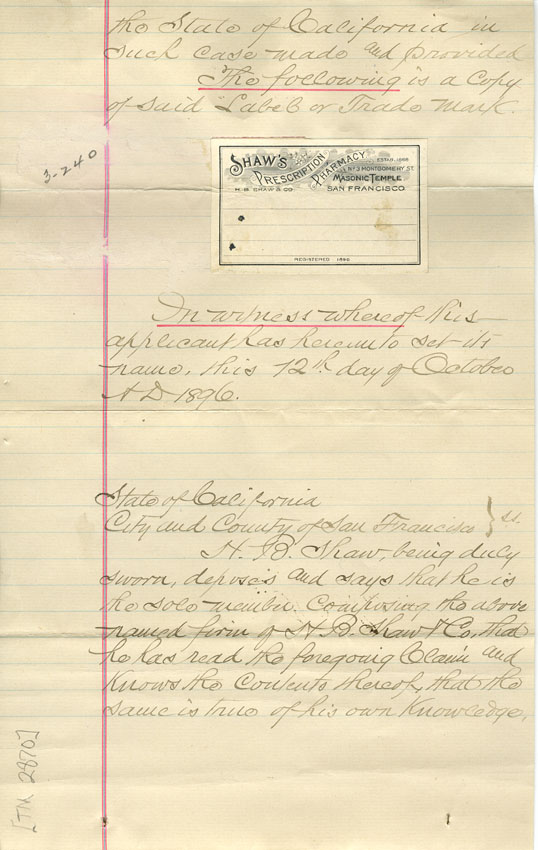 the State of California in
such case made and provided
The following is a Copy
of said Label or Trade Mark.
3-240
SHAW'S
PRESCRIPTION
PHARMACY
ESTAB. 1866
No 3 MONTGOMERY ST.
MASONIC TEMPLE
H. B. SHAW & CO.
SAN FRANCISCO
REGISTERED 1896
In witness whereof this
applicant has hereunto set its
name, this 12th day of October
A D 1896.
State of California
City and County of San Francisco } s.s.
H. B. Shaw, being duly
sworn, deposes and says that he is
the sole member composing the above
named firm of H. B. Shaw & Co, that
he has read the foregoing Claim and
Knows the Contents thereof, that the
same is true of his own Knowledge,
[TM 2870]